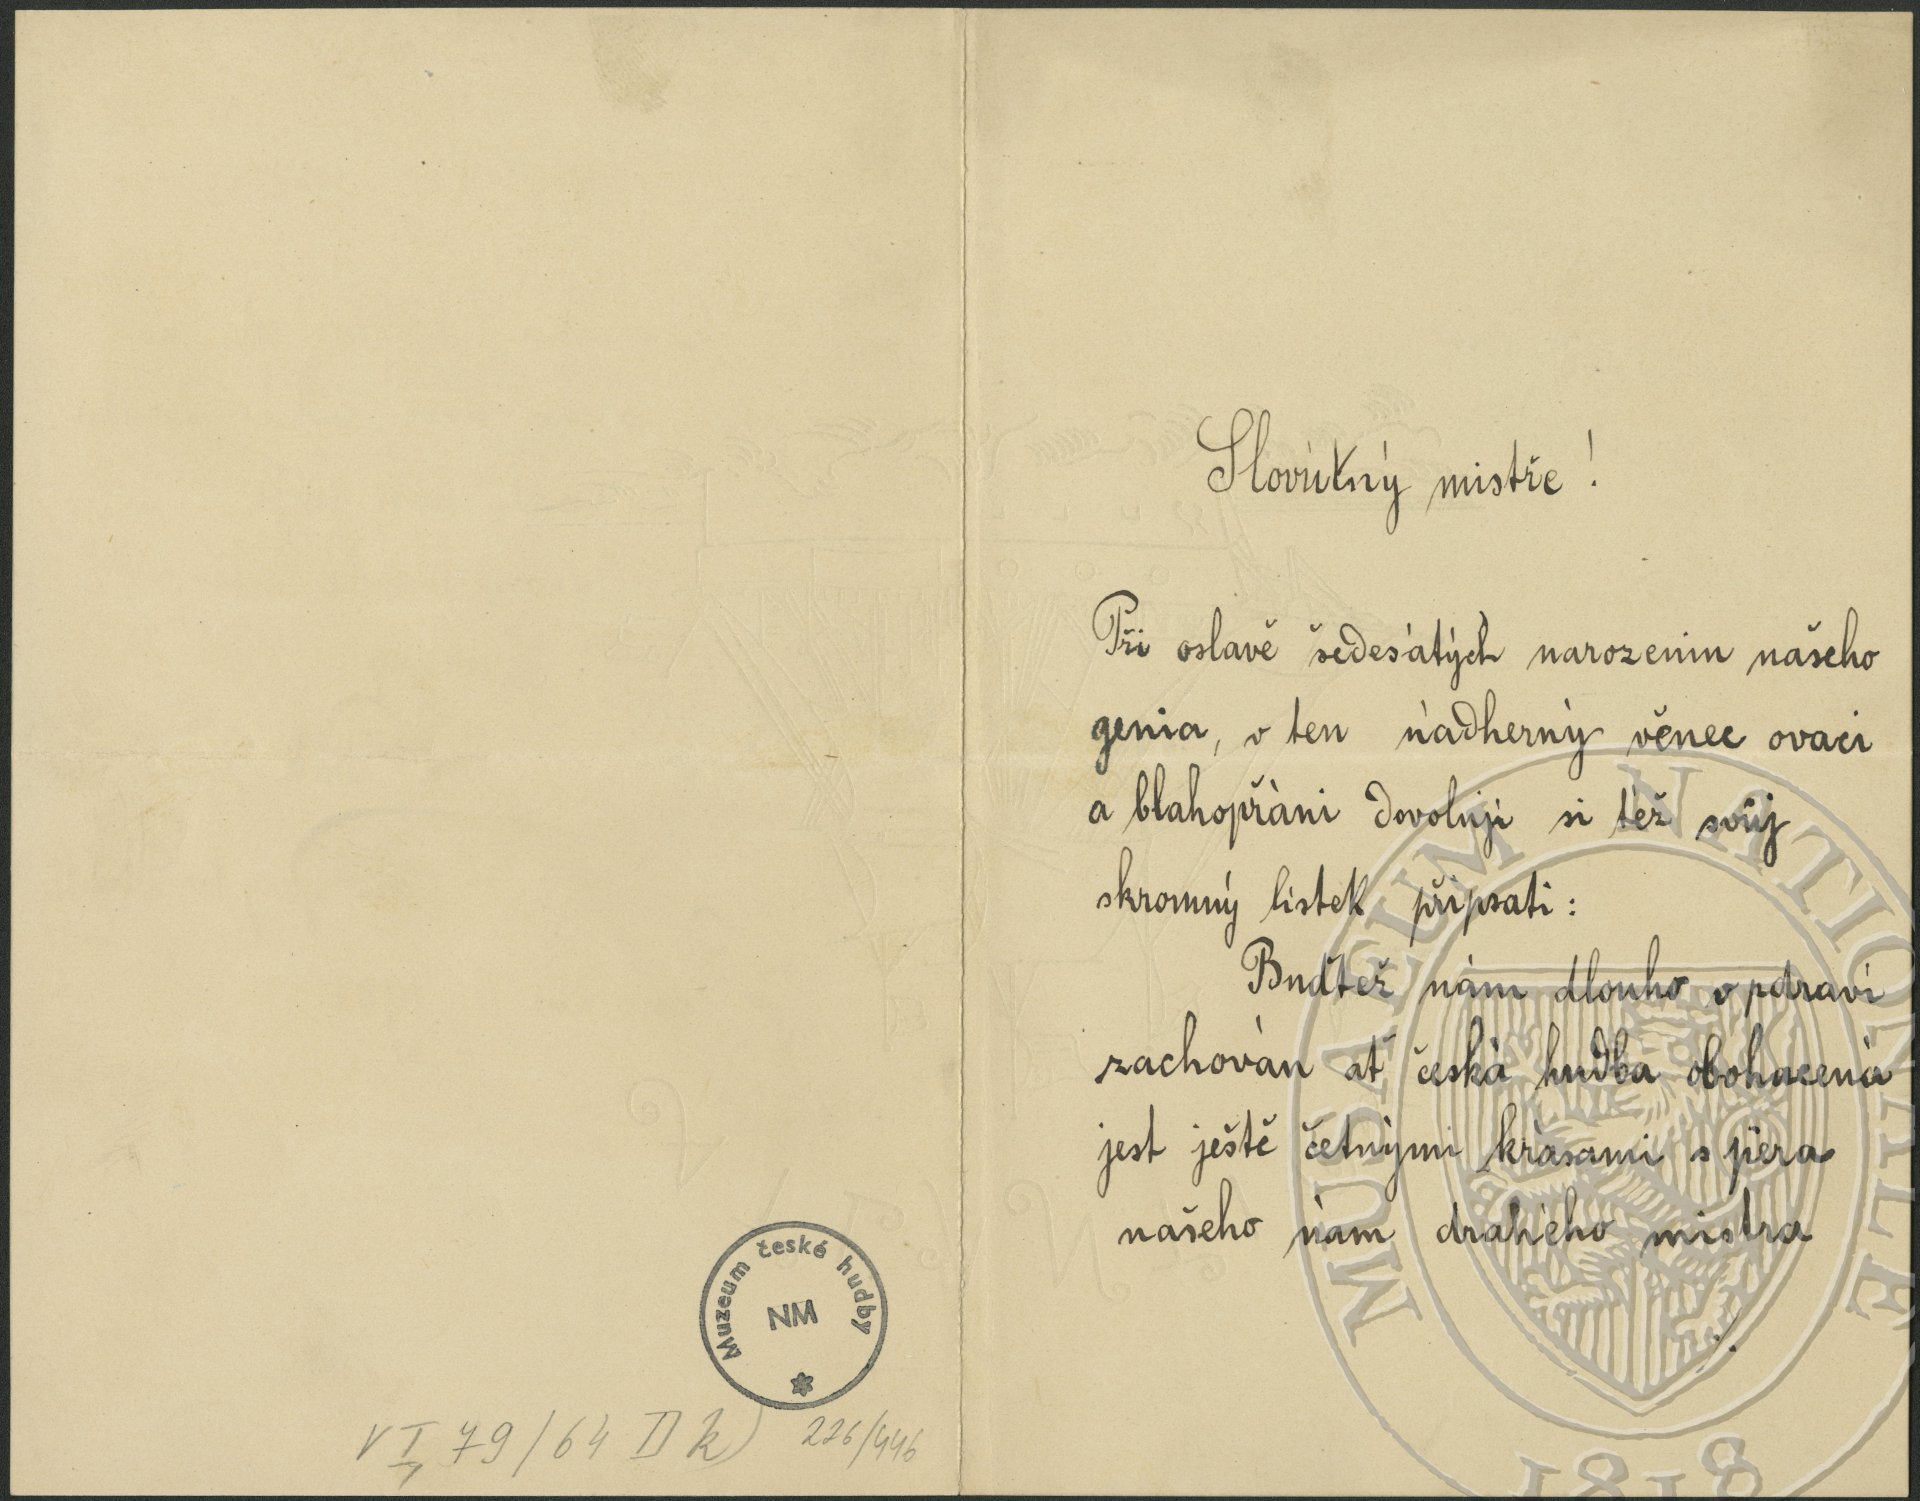 Muzeum české hudby
NM
VI 79/64 II k)
226/446
Slovutný mistře!
Při oslavě šedesátých narozenin našeho
genia, v ten nádherný věnec ovací
a blahopřání dovoluji si též svůj
skromný lístek připsati:
Buďtež nám dlouho v zdraví
zachován ať česká hudba obohacená
jest ještě četnými krásami s pera
našeho nám drahého mistra
MUSAEUM NATIONALE
1818